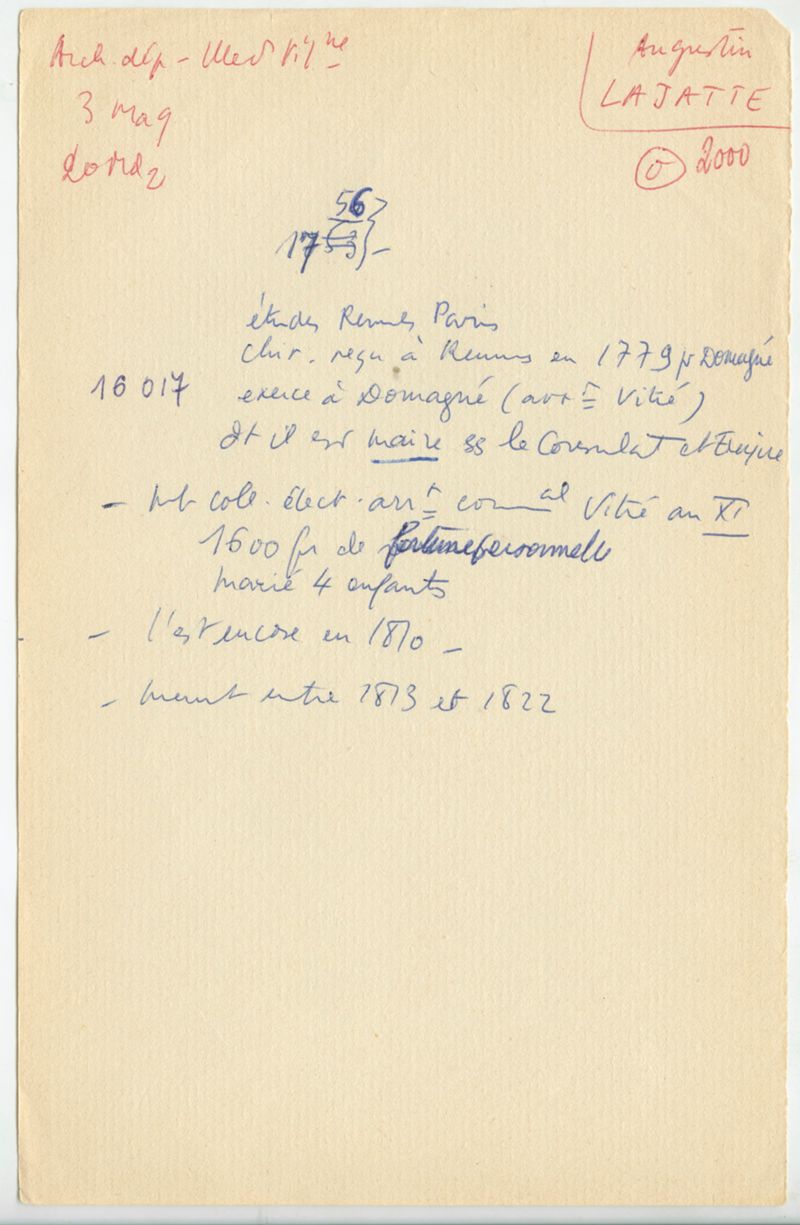 Arch. dép - Med
3 Mag
20 Md 2
Augustin
LAJATTE
2000
56
17
études Rennes Paris
chir. reçu à Rennes en 1779 pr Domagné
16 017
exerce à Domagné (arrt Vitré)
dt il est maire ss le Consulat et Empire
- mb coll. élect. arrt comal Vitré an XI
1600 fr de fortune personnelle
marié 4 enfants
- l'est encore en 1810 -
- meurt entre 1813 et 1822